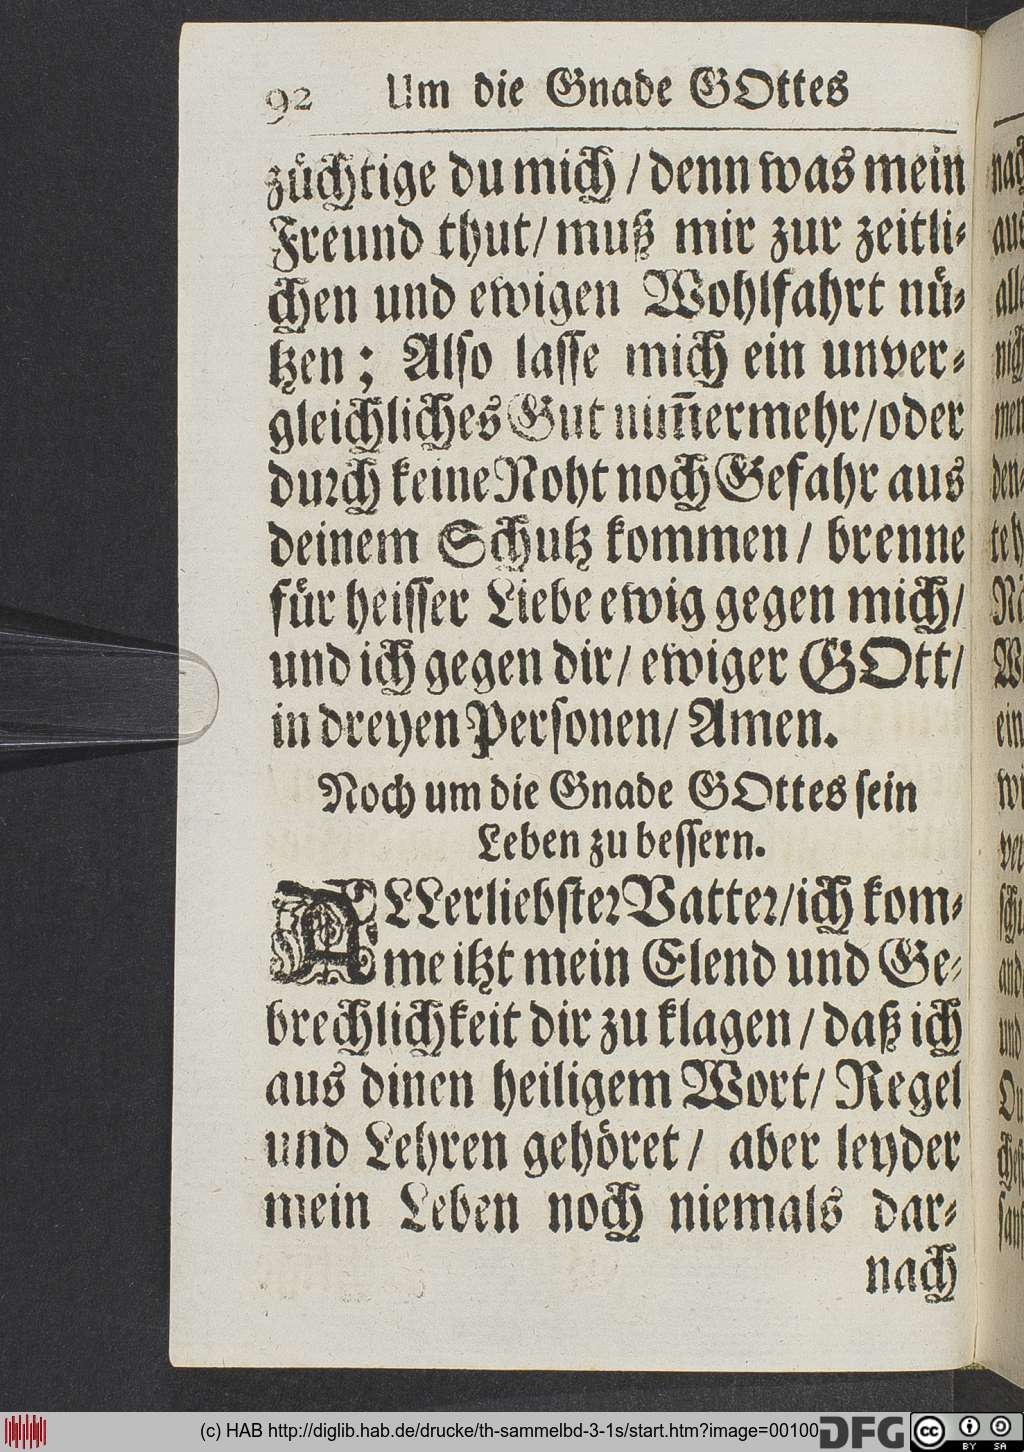 92 Um die Gnade GOttes
züchtige du mich / denn was mein
Freund thut / muß mir zur zeitli⸗
chen und ewigen Wohlfahrt nü⸗
tzen ; Also lasse mich ein unver⸗
gleichliches Gut nim̃ermehr / oder
durch keine Noht noch Gefahr aus
deinem Schutz kommen / brenne
für heisser Liebe ewig gegen mich /
und ich gegen dir / ewiger GOtt /
in dreyen Personen / Amen.
Noch um die Gnade GOttes sein
Leben zu bessern.
ALLerliebster Vatter / ich kom⸗
me itzt mein Elend und Ge⸗
brechlichkeit dir zu klagen / daß ich
aus dinen heiligem Wort / Regel
und Lehren gehöret / aber leyder
mein Leben noch niemals dar⸗
nach
(c) HAB http://diglib.hab.de/drucke/th-sammelbd-3-1s/start.htm?image=00100
DFG
cc BY SA